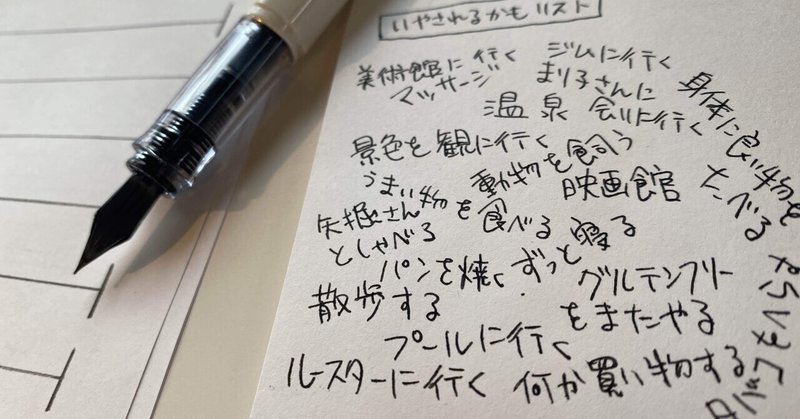 いやされるかもリスト
美術館に行く
ジムに行く
マッサージ
まり子さんに
会いに行く
温泉
身体に良い物を
たべる
景色を観に行く
動物を飼う
うまい物を食べる
映画館
矢掘さん
としゃべる
ずっと寝る
パンを焼く
グルテンフリー
をまたやる
散歩する
プールに行く
ルースターに行く
何か買い物する